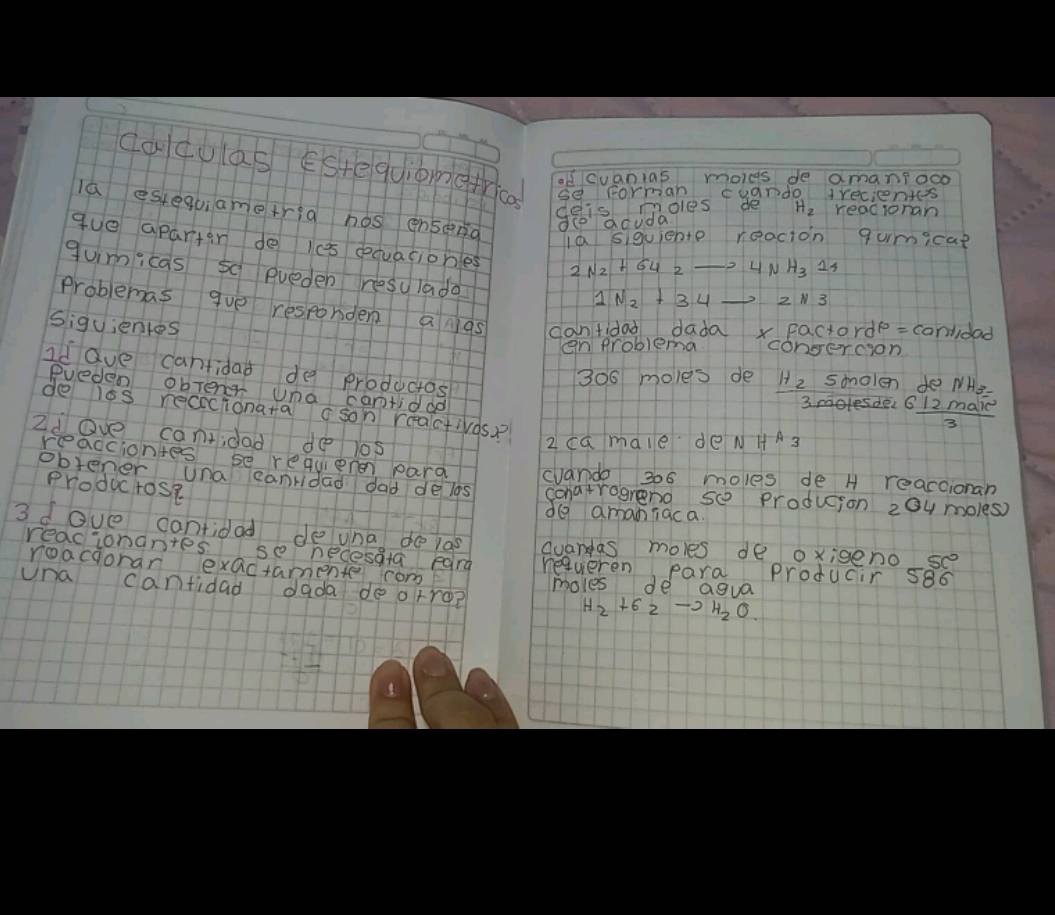 Calculas Estequiometricos
la estequiametria nos enseña
que apartir de las ecuaciones
quimicas se pueden resulado
Problemas que responden a las
siguientes
1d Que cantidad de productos
pueden obtener una cantidad
de los reaccionata cson reactivos?
2d Que cantidad de los
reacciontes se requieren para
obtener una cantidad dad de los
productos?
3d Que cantidad de una de las
reacionantes se necesata para
reacionar exactamente com
una cantidad dada de otro?
d cuantas moles de amanioco
se forman cuando trecientos
ceis moles de H2 reacioran
de acuda
la siguiente reación qumica?
2N2 + 64 2 → 4NH3 1s
1N2 + 34 → 2N3
cantidad dada x factorde = cantidad
en problema consercion
306 moles de H2 smolen de NH3-
3 molesde2 612 male
3
2 ca male de NHA3
cuando 306 moles de H reaccionan
conatrogreno se producion 204 moles
de amaniaca.
quantas moles de oxigeno se
requieren para producir 586
moles de agua
H2 + 62 → H2O.